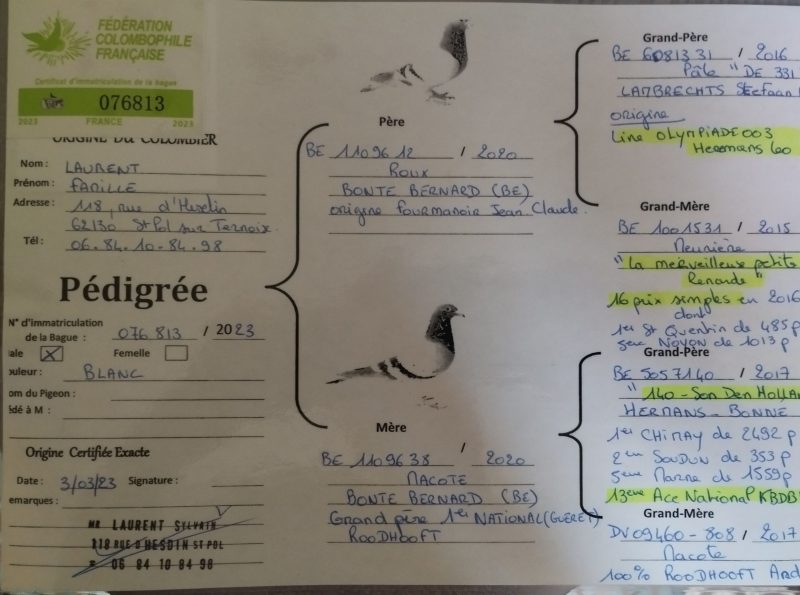 FÉDÉRATION
COLOMBOPHILE
FRANÇAISE
Certificat d'immatriculation de la bague
076813
2023 FRANCE 2023
ORIGINE DU COLOMBIER
Nom : LAURENT
Prénom : FAMILLE
Adresse : 118, rue d'Hesdin
62130 St Pol sur Ternoise.
Tél : 06.84.10.84.98
Pédigrée
N° d'immatriculation
de la Bague : 076.813 / 2023
ale X Femelle
ouleur : BLANC
om du Pigeon :
édé à M :
Origine Certifiée Exacte
Date : 3/03/23 Signature :
emarques :
MR LAURENT SYLVAIN
118 RUE D'HESDIN ST POL
06 84 10 84 98
Père
BE 1109612 / 2020
Roux
BONTE BERNARD (BE)
origine Fourmanoir Jean Claude.
Mère
BE 1109638 / 2020
MACOTE
BONTE BERNARD (BE)
Grand père 1er NATIONAL (GUÉRET)
ROODHOOFT
Grand-Père
BE 6081331 / 2016
Pâle "DE 331
LAMBRECHTS Steefaan
origine
Line OLYMPIADE 003
Heremans 60
Grand-Mère
BE 1001531 / 2015
Meunière
"La merveilleuse petite
Renarde"
16 prix simples en 2016
dont
1er St Quentin de 485 p
5eme NOYON de 1013 p
Grand-Père
BE 5057140 / 2017
"140 - Son Den HOLLA
HERMANS - BONNE
1er CHIMAY de 2492 p
2em SOUDUN de 353 p
5eme Marne de 1559 p
13eme Ace National KBDB
Grand-Mère
DV09460-808 / 2017
Macote
100% ROODHOOFT And